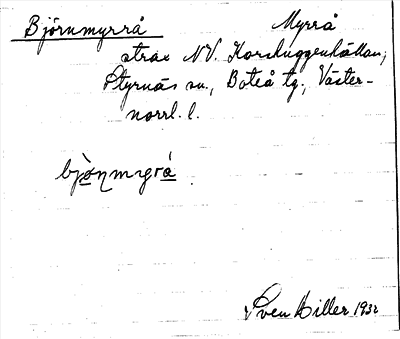 Björnmyrrå Myrrå
strax NV. Korshuggenhällan,
Styrnäs sn., Boteå tg., Väster-
norrl. l.
bjö̀ṇmyrå
Sven Hiller 1932